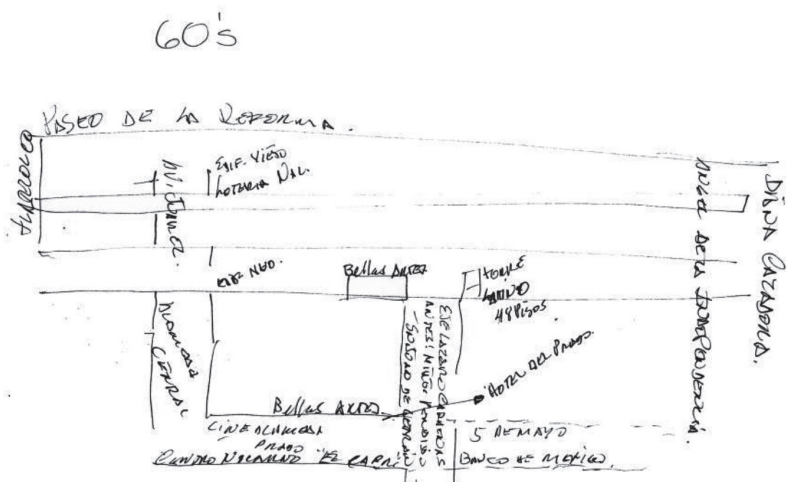 60's
PASEO DE LA REFORMA.
EDIF. VIEJO
LOTERIA NAL.
AV. JUAREZ.
ANGEL DE LA INDEPENDENCIA.
DIANA CAZADORA.
EDIF NVO.
Bellas ARTES
TORRE
LATINO
48 PISOS
ALAMEDA
CENTRAL
EJE LAZARO CARDENAS
ANTES: NIÑO PERDIDO
SAN JUAN DE LETRAN
HOTEL DEL PRADO.
Bellas ARTES
CINE ALAMEDA
PRADO
CENTRO NOCTURNO "EL
5 DE MAYO
BANCO DE MEXICO.